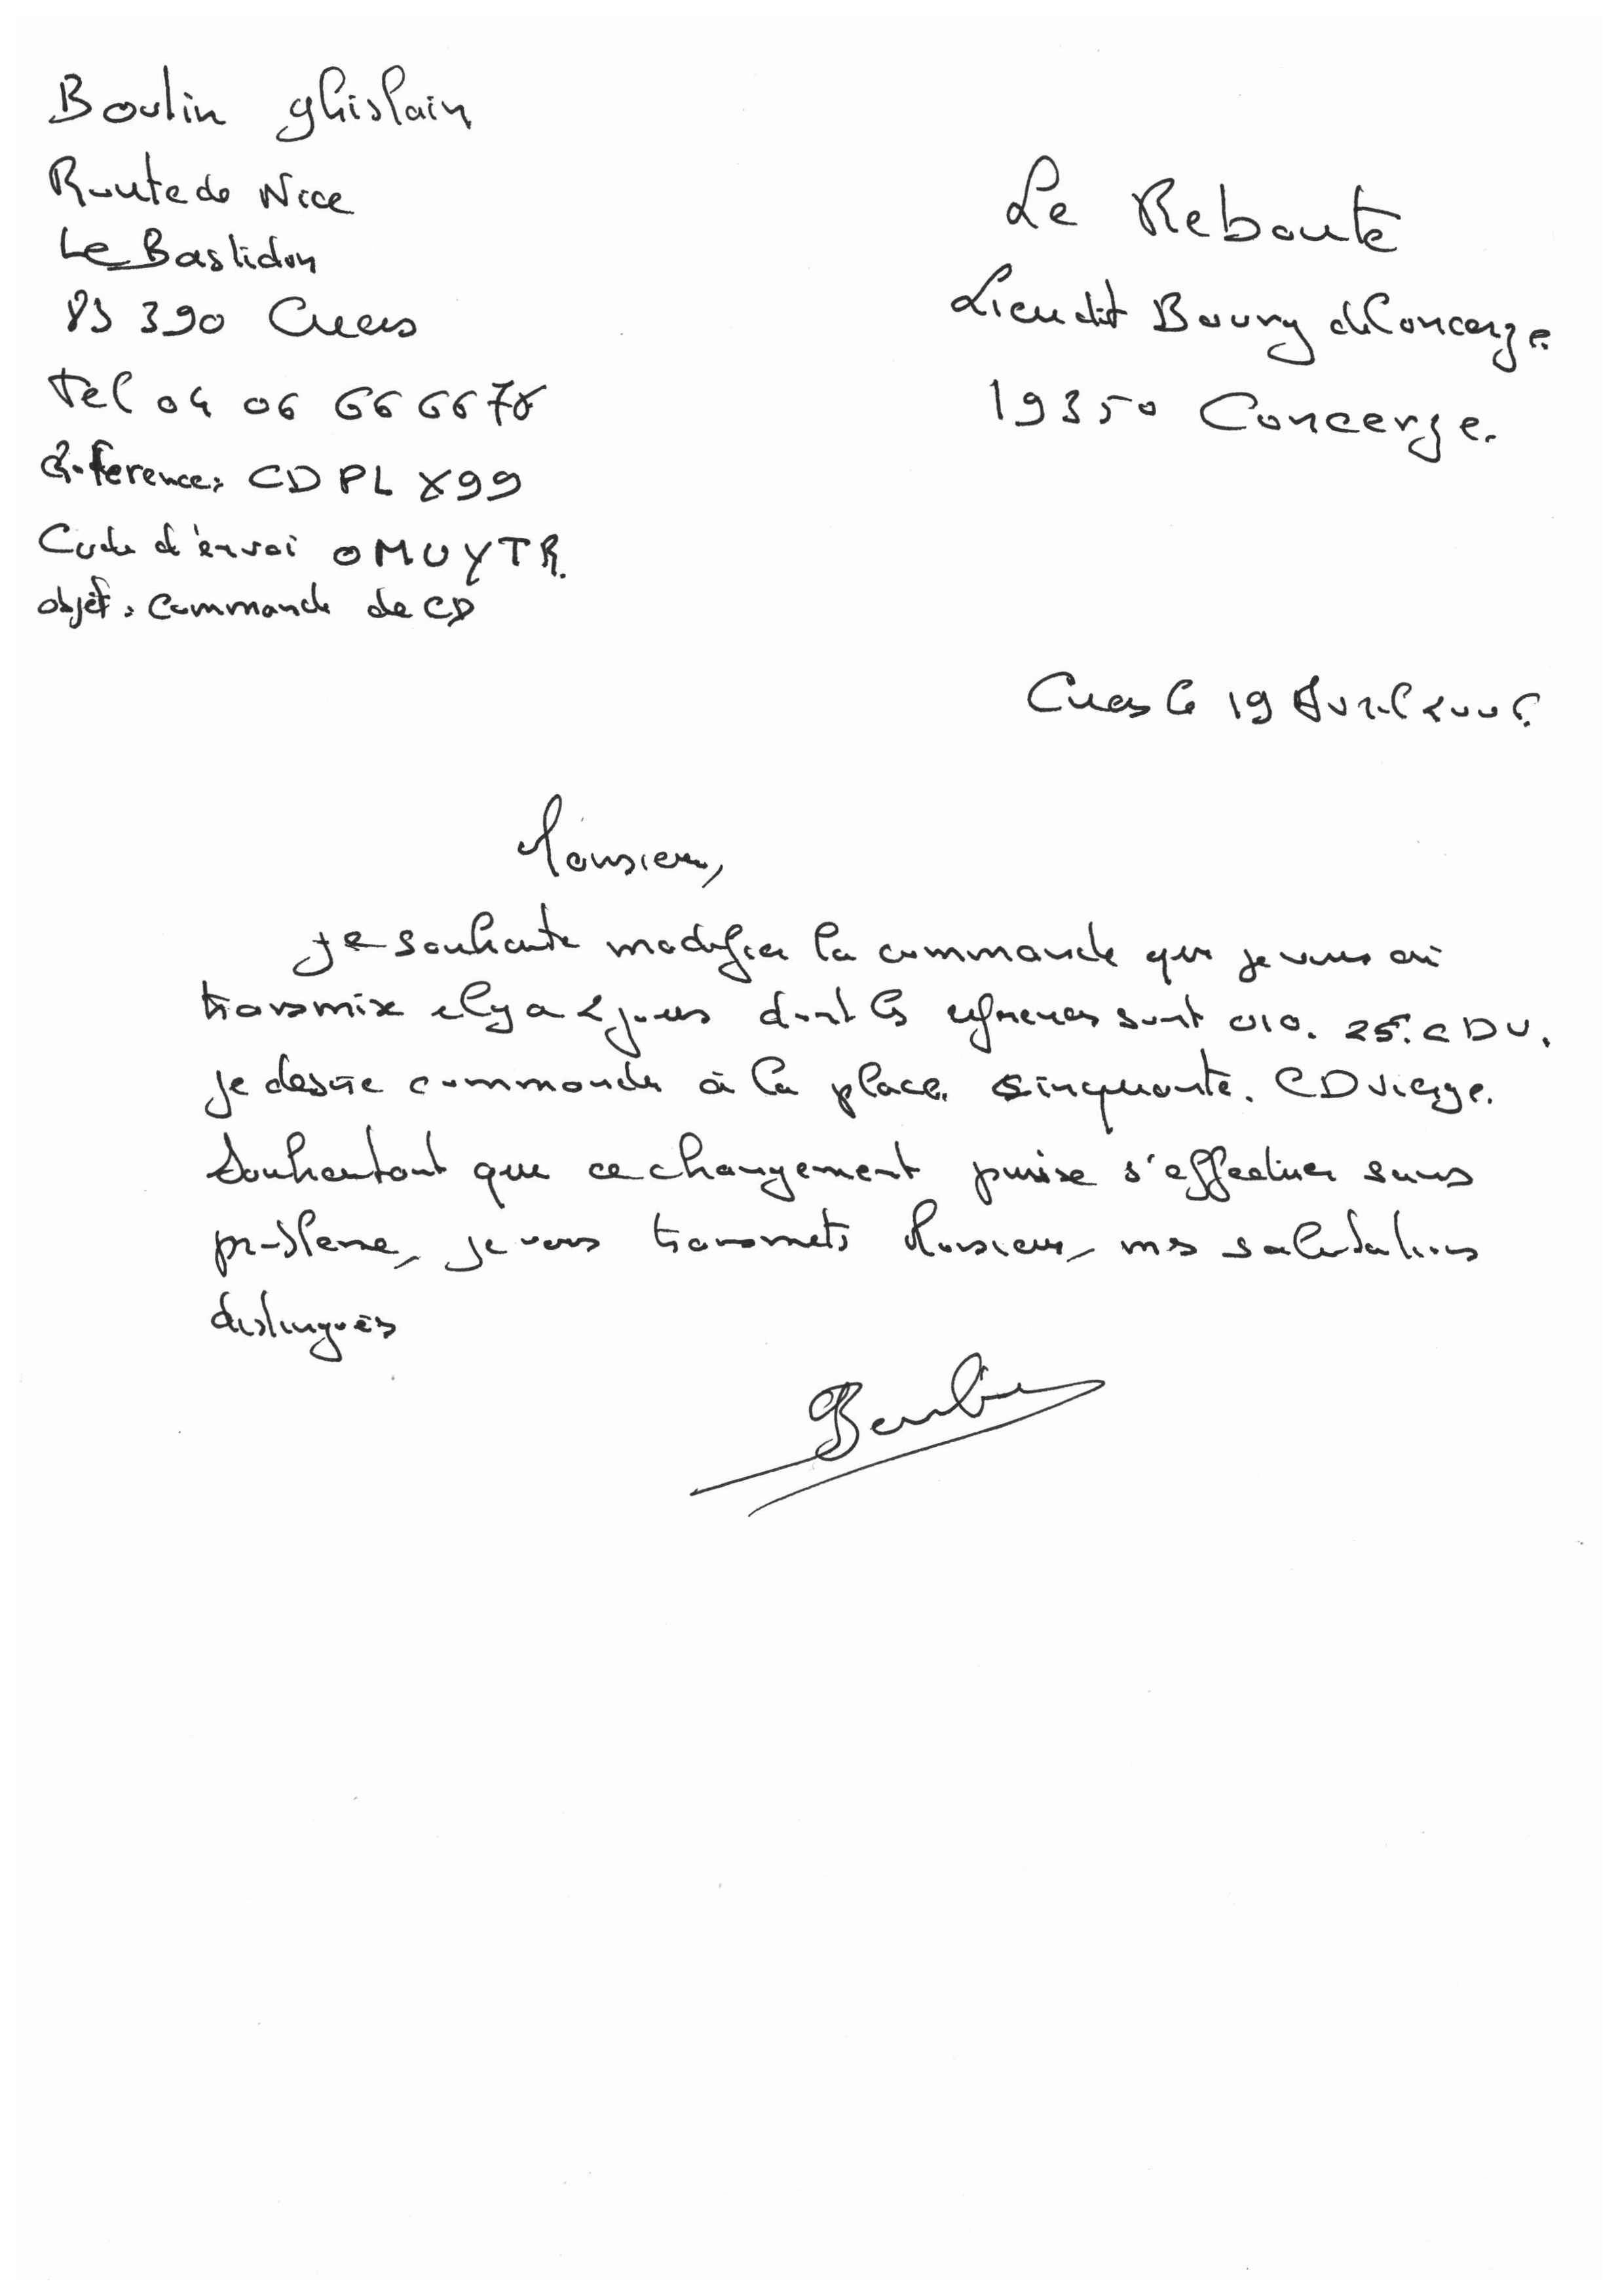 Boulin ghislain
Route de Nice
Le Bastidon
83 390 Cuers
Tel 04 06 66 66 78
Reference: CD PL X99
Code d'envoi OMUYTR.
objet : Commande de CD
Le Reboute
Lieu dit Bourg de Concerze.
19350 Concerze.
Cuers le 19 Avril 2006.
Monsieur,
je souhaite modifier la commande que je vous ai
transmise il y a 2 jours dont les references sont 010. 25. CDV.
je desire commander à la place. cinquante. CD vierge.
Souhaitant que ce changement puisse s'effectuer sans
problème, je vous transmets Monsieur, mes salutations
distingués
Boulin